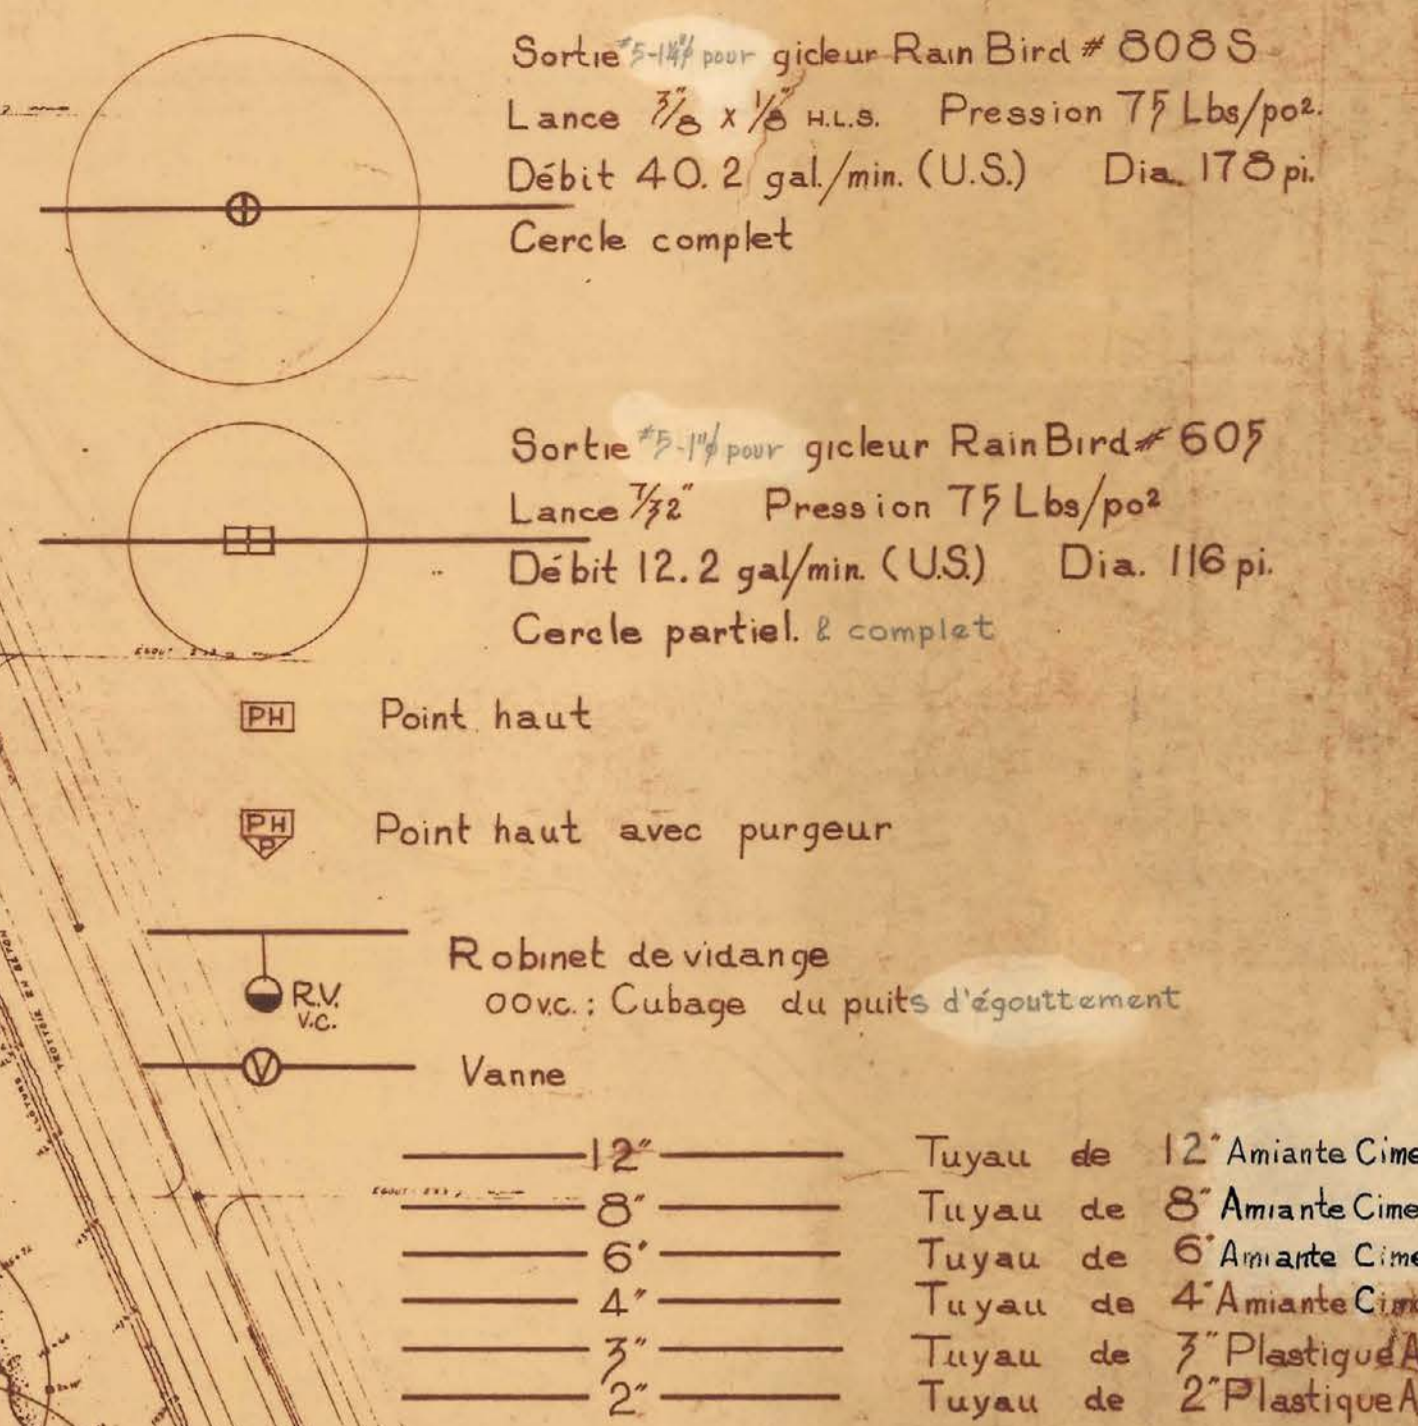 Sortie #5-1¼"ø pour gicleur Rain Bird # 808S
Lance 3/8" x 1/8" H.L.S. Pression 75 Lbs/po².
Débit 40.2 gal./min. (U.S.) Dia. 178 pi.
Cercle complet
Sortie #5-1"ø pour gicleur Rain Bird # 605
Lance 7/32" Pression 75 Lbs/po²
Débit 12.2 gal/min. (U.S.) Dia. 116 pi.
Cercle partiel. & complet
EGOUT
PH Point haut
PH P Point haut avec purgeur
Robinet de vidange
R.V. 00 v.c. : Cubage du puits d'égouttement
V.C.
TROTTOIR EN BÉTON
CLÔTURE
V Vanne
12" Tuyau de 12" Amiante Cime
EGOUT
8" Tuyau de 8" Amiante Cime
6" Tuyau de 6" Amiante Cime
4" Tuyau de 4" Amiante Cim
3" Tuyau de 3" Plastique A
2" Tuyau de 2" Plastique A